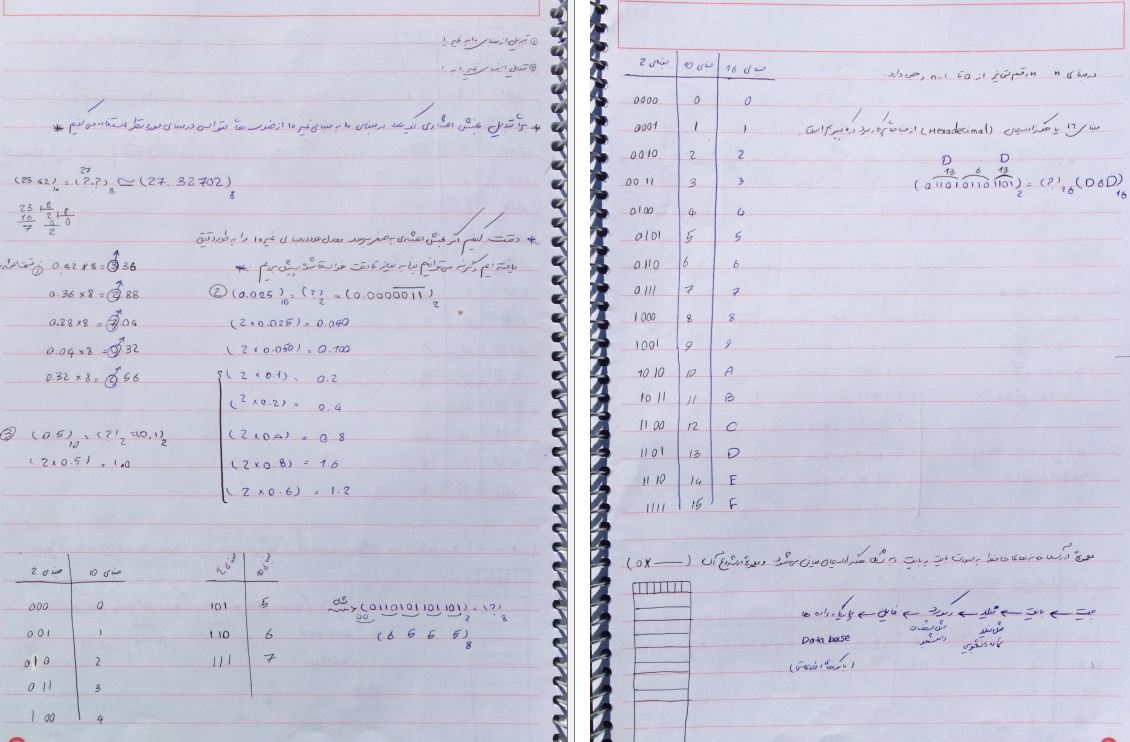 ① تبدیل از مبنای ۱۰ به غیر ۱۰
② تبدیل از مبنای غیر ۱۰ به ۱۰
* برای تبدیل بخش اعشاری یک عدد در مبنای ۱۰ به مبنای غیر ۱۰ از ضرب ها متوالی در مبنای مورد نظر استفاده می کنیم *
27
(23.62)10 = (?.?)8 ≃ (27.32702)8
23 8
16 2 8
7 0 0
2
* دقت کنیم اگر بخش اعشاری به صفر برسد معادل عدد در مبنای غیر ۱۰ را به طور دقیق
یافته ایم وگرنه می توانیم بنا به نیاز تا دقت خواسته شده پیش برویم *
① 0.42 × 8 = 3.36
0.36 × 8 = 2.88
0.28 × 8 = 7.04
0.04 × 8 = 0.32
0.32 × 8 = 2.56
② (0.025)10 = (?)2 = (0.0000011)2
(2×0.025) = 0.050
(2×0.050) = 0.100
(2×0.1) = 0.2
(2×0.2) = 0.4
(2×0.4) = 0.8
(2×0.8) = 1.6
(2×0.6) = 1.2
③ (0.5)10 = (?)2 = (0.1)2
(2×0.5) = 1.0
مبنای 2 مبنای 10
000 0
001 1
010 2
011 3
100 4
مبنای 2 مبنای 10
101 5
110 6
111 7
مثال (01101011 01101)2 = (?)8
00
(6 5 5 5)8
مبنای 2 مبنای 10 مبنای 16
0000 0 0
0001 1 1
0010 2 2
0011 3 3
0100 4 4
0101 5 5
0110 6 6
0111 7 7
1000 8 8
1001 9 9
1010 10 A
1011 11 B
1100 12 C
1101 13 D
1110 14 E
1111 15 F
در مبنای n، n رقم متمایز از 0 تا n-1 وجود دارد.
مبنای ۱۶ یا هگزادسیمال (Hexadecimal) از مبناهای پرکاربرد در کامپیوتر است.
D D
13 6 13
(0110101101101)2 = (?)16 (D6D)16
آدرس خانه های حافظه به صورت بایت به بایت و به شکل هگزادسیمال بیان می شود و در شروع آن (0x —)
بیت ← بایت ← فیلد ← رکورد ← فایل ← پایگاه داده ها
Data base
مثل فیلد
نام دانشجو
مثل مشخصات
دانشجو
(بانک های اطلاعاتی)